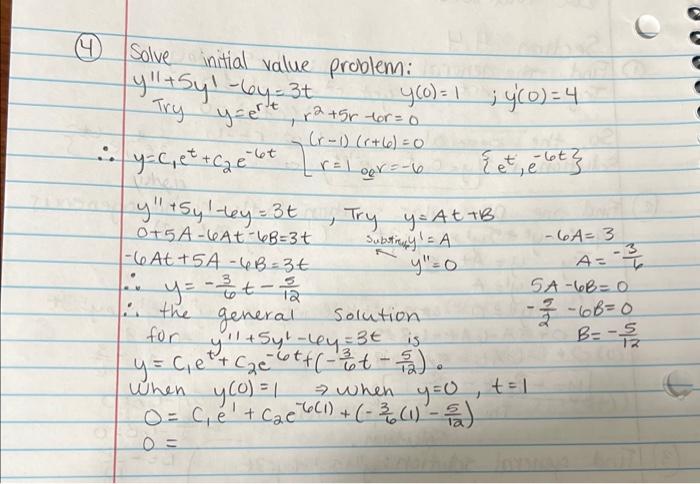 ④ Solve initial value problem:
y"+5y'-6y=3t y(0)=1 ; y'(0)=4
Try y=e^rt, r²+5r-6r=0
(r-1)(r+6)=0
∴ y=C₁e^t+C₂e^-6t r=1 or r=-6 {e^t, e^-6t}
y"+5y'-6y=3t, Try y=At+B
0+5A-6At-6B=3t y'=A -6A=3
-6At+5A-6B=3t y"=0 A=-3/6
∴ y=-3/6t-5/12 5A-6B=0
∴ the general solution -5/2-6B=0
for y"+5y'-6y=3t is B=-5/12
y=C₁e^t+C₂e^-6t+(-3/6t-5/12).
When y(0)=1 ⇒ when y=0, t=1
0=C₁e^1+C₂e^-6(1)+(-3/6(1)-5/12)
0=